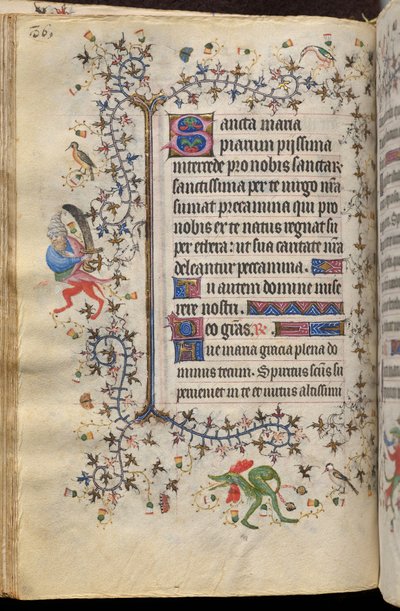 136
Sancta maria
piarum piissima
intercede pro nobis sanctar̄
sanctissima per te uirgo n̄ra
sumat precamina qui pro
nobis ex te natus regnat su
per ethera: ut sua caritate n̄ra
deleantur peccamina.
Tu autem domine mise
rere nostri.
Deo gr̄as. R̄e
Aue maria gracia plena do
minus tecum. Spiritus sc̄us su
perueniet in te et uirtus altissimi